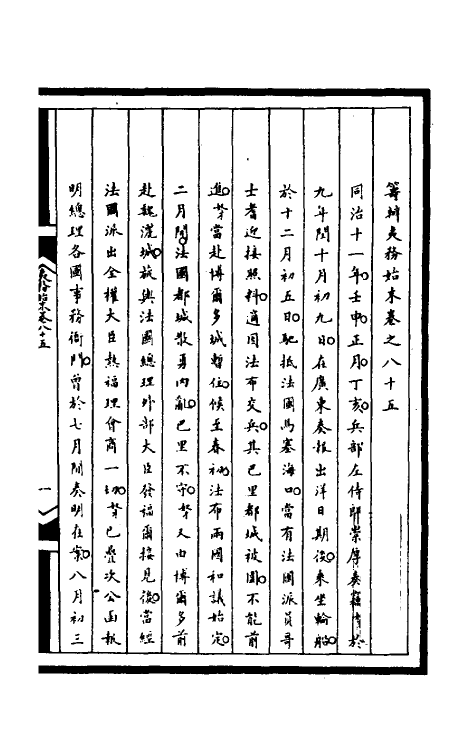 籌辦夷務始末卷之八十五
同治十一年壬申正月丁亥兵部左侍郎崇厚奏竊於
九年閏十月初九日在廣東奏報出洋日期後乘坐輪船
於十二月初五日馳抵法國馬塞海口當有法國派員哥
士耆迎接照料適因法布交兵其巴里都城被圍不能前
進等當赴博爾多城暫住候至春初法布兩國和議始定
二月間法國都城散勇內亂巴里不守等又由博爾多前
赴魏灑城旅與法國總理外部大臣發福爾接見後當經
法國派出全權大臣熱福理會商一切等已疊次公函報
明總理各國事務衙門曾於七月間奏明在案八月初三
夷務始末卷八十五
一